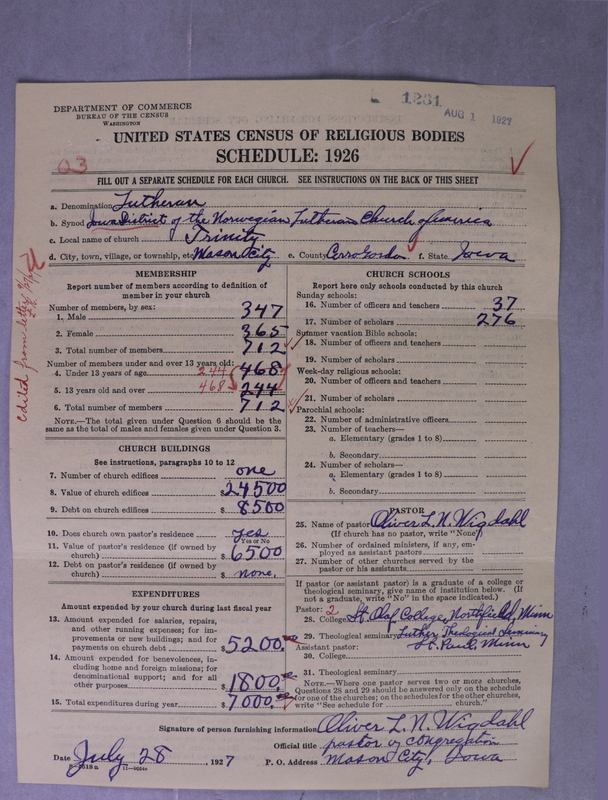 1281
AUG 1 1927
DEPARTMENT OF COMMERCE
BUREAU OF THE CENSUS
WASHINGTON
UNITED STATES CENSUS OF RELIGIOUS BODIES
SCHEDULE: 1926
FILL OUT A SEPARATE SCHEDULE FOR EACH CHURCH. SEE INSTRUCTIONS ON THE BACK OF THIS SHEET
a. Denomination Lutheran
b. Synod Iowa District of the Norwegian Lutheran Church of America
c. Local name of church Trinity
d. City, town, village, or township, etc Mason City e. County Cerro Gordo f. State Iowa
edited from letter
MEMBERSHIP
Report number of members according to definition of
member in your church
Number of members, by sex:
1. Male 347
2. Female 365
3. Total number of members 712
Number of members under and over 13 years old:
4. Under 13 years of age 244 468
5. 13 years old and over 468 244
6. Total number of members 712
NOTE.—The total given under Question 6 should be the
same as the total of males and females given under Question 3.
CHURCH BUILDINGS
See instructions, paragraphs 10 to 12
7. Number of church edifices one
8. Value of church edifices $24500
9. Debt on church edifices $8500
10. Does church own pastor's residence yes
Yes or No
11. Value of pastor's residence (if owned by
church) $6500
12. Debt on pastor's residence (if owned by
church) $none.
EXPENDITURES
Amount expended by your church during last fiscal year
13. Amount expended for salaries, repairs,
and other running expenses; for im-
provements or new buildings; and for
payments on church debt $5200.00
14. Amount expended for benevolences, in-
cluding home and foreign missions; for
denominational support; and for all
other purposes $1800.00
15. Total expenditures during year $7000.00
CHURCH SCHOOLS
Report here only schools conducted by this church
Sunday schools:
16. Number of officers and teachers 37
17. Number of scholars 276
Summer vacation Bible schools:
18. Number of officers and teachers
19. Number of scholars
Week-day religious schools:
20. Number of officers and teachers
21. Number of scholars
Parochial schools:
22. Number of administrative officers
23. Number of teachers—
a. Elementary (grades 1 to 8)
b. Secondary
24. Number of scholars—
a. Elementary (grades 1 to 8)
b. Secondary
PASTOR
25. Name of pastor Oliver L. N. Wigdahl
(If church has no pastor, write "None")
26. Number of ordained ministers, if any, em-
ployed as assistant pastors
27. Number of other churches served by the
pastor or his assistants
If pastor (or assistant pastor) is a graduate of a college or
theological seminary, give name of institution below. (If
not a graduate, write "No" in the space indicated.)
Pastor: 2
28. College St. Olaf College, Northfield, Minn
29. Theological seminary Luther Theological Seminary
Assistant pastor: St. Paul, Minn
30. College
31. Theological seminary
NOTE.—Where one pastor serves two or more churches,
Questions 28 and 29 should be answered only on the schedule
for one of the churches; on the schedules for the other churches,
write "See schedule for church."
Signature of person furnishing information Oliver L. N. Wigdahl
Official title pastor of congregation
Date July 28, 1927 P. O. Address Mason City, Iowa